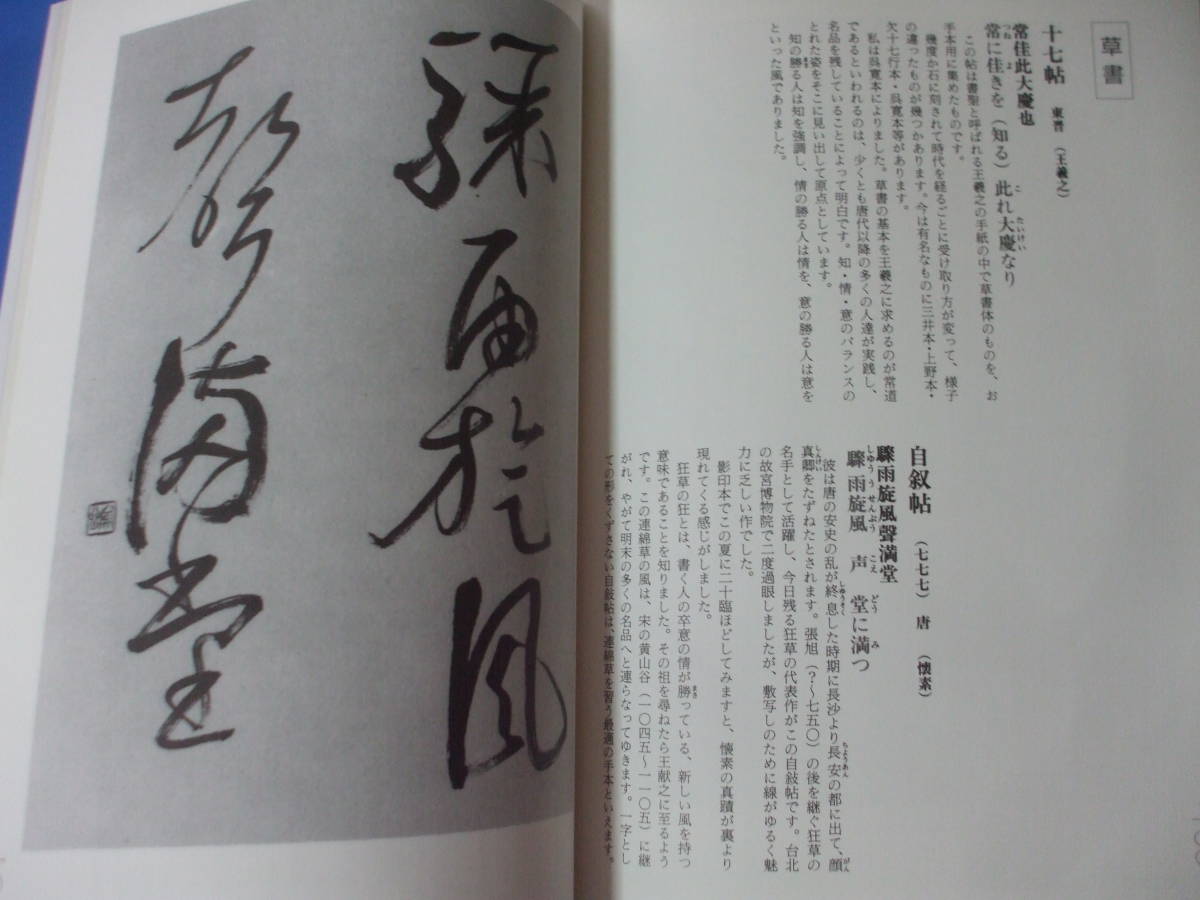 草書
十七帖 東晋 (王羲之)
常佳此大慶也
常に佳きを(知る)此れ大慶なり
つね よ こ たいけい
この帖は書聖と呼ばれる王羲之の手紙の中で草書体のものを、お
手本用に集めたものです。
幾度か石に刻されて時代を経るごとに受け取り方が変って、様子
の違ったものが幾つかあります。今は有名なものに三井本・上野本・
欠十七行本・呉寛本等があります。
私は呉寛本によりました。草書の基本を王羲之に求めるのが常道
であるといわれるのは、少くとも唐代以降の多くの人達が実践し、
名品を残していることによって明白です。知・情・意のバランスの
とれた姿をそこに見い出して原点としています。
知の勝る人は知を強調し、情の勝る人は情を、意の勝る人は意を
まさ
といった風でありました。
自叙帖 (七七七) 唐 (懐素)
驟雨旋風聲満堂
しゆう う せんぷう
驟雨旋風 声 堂に満つ
こえ どう み
彼は唐の安史の乱が終息した時期に長沙より長安の都に出て、顔
しゆうそく ちようあん がん
真卿をたずねたとされます。張旭(?〜七五〇)の後を継ぐ狂草の
しんけい
名手として活躍し、今日残る狂草の代表作がこの自敍帖です。台北
の故宮博物院で二度過眼しましたが、敷写しのために線がゆるく魅
力に乏しい作でした。
影印本でこの夏に二十臨ほどしてみますと、懐素の真蹟が裏より
現れてくる感じがしました。
狂草の狂とは、書く人の卒意の情が勝っている、新しい風を持つ
まさ
意味であることを知りました。その祖を尋ねたら王献之に至るよう
です。この連綿草の風は、宋の黄山谷(一〇四五〜一一〇五)に継
がれ、やがて明末の多くの名品へと連らなってゆきます。一字とし
ての形をくずさない自敍帖は、連綿草を習う最適の手本といえます。
驟雨旋風
聲満堂